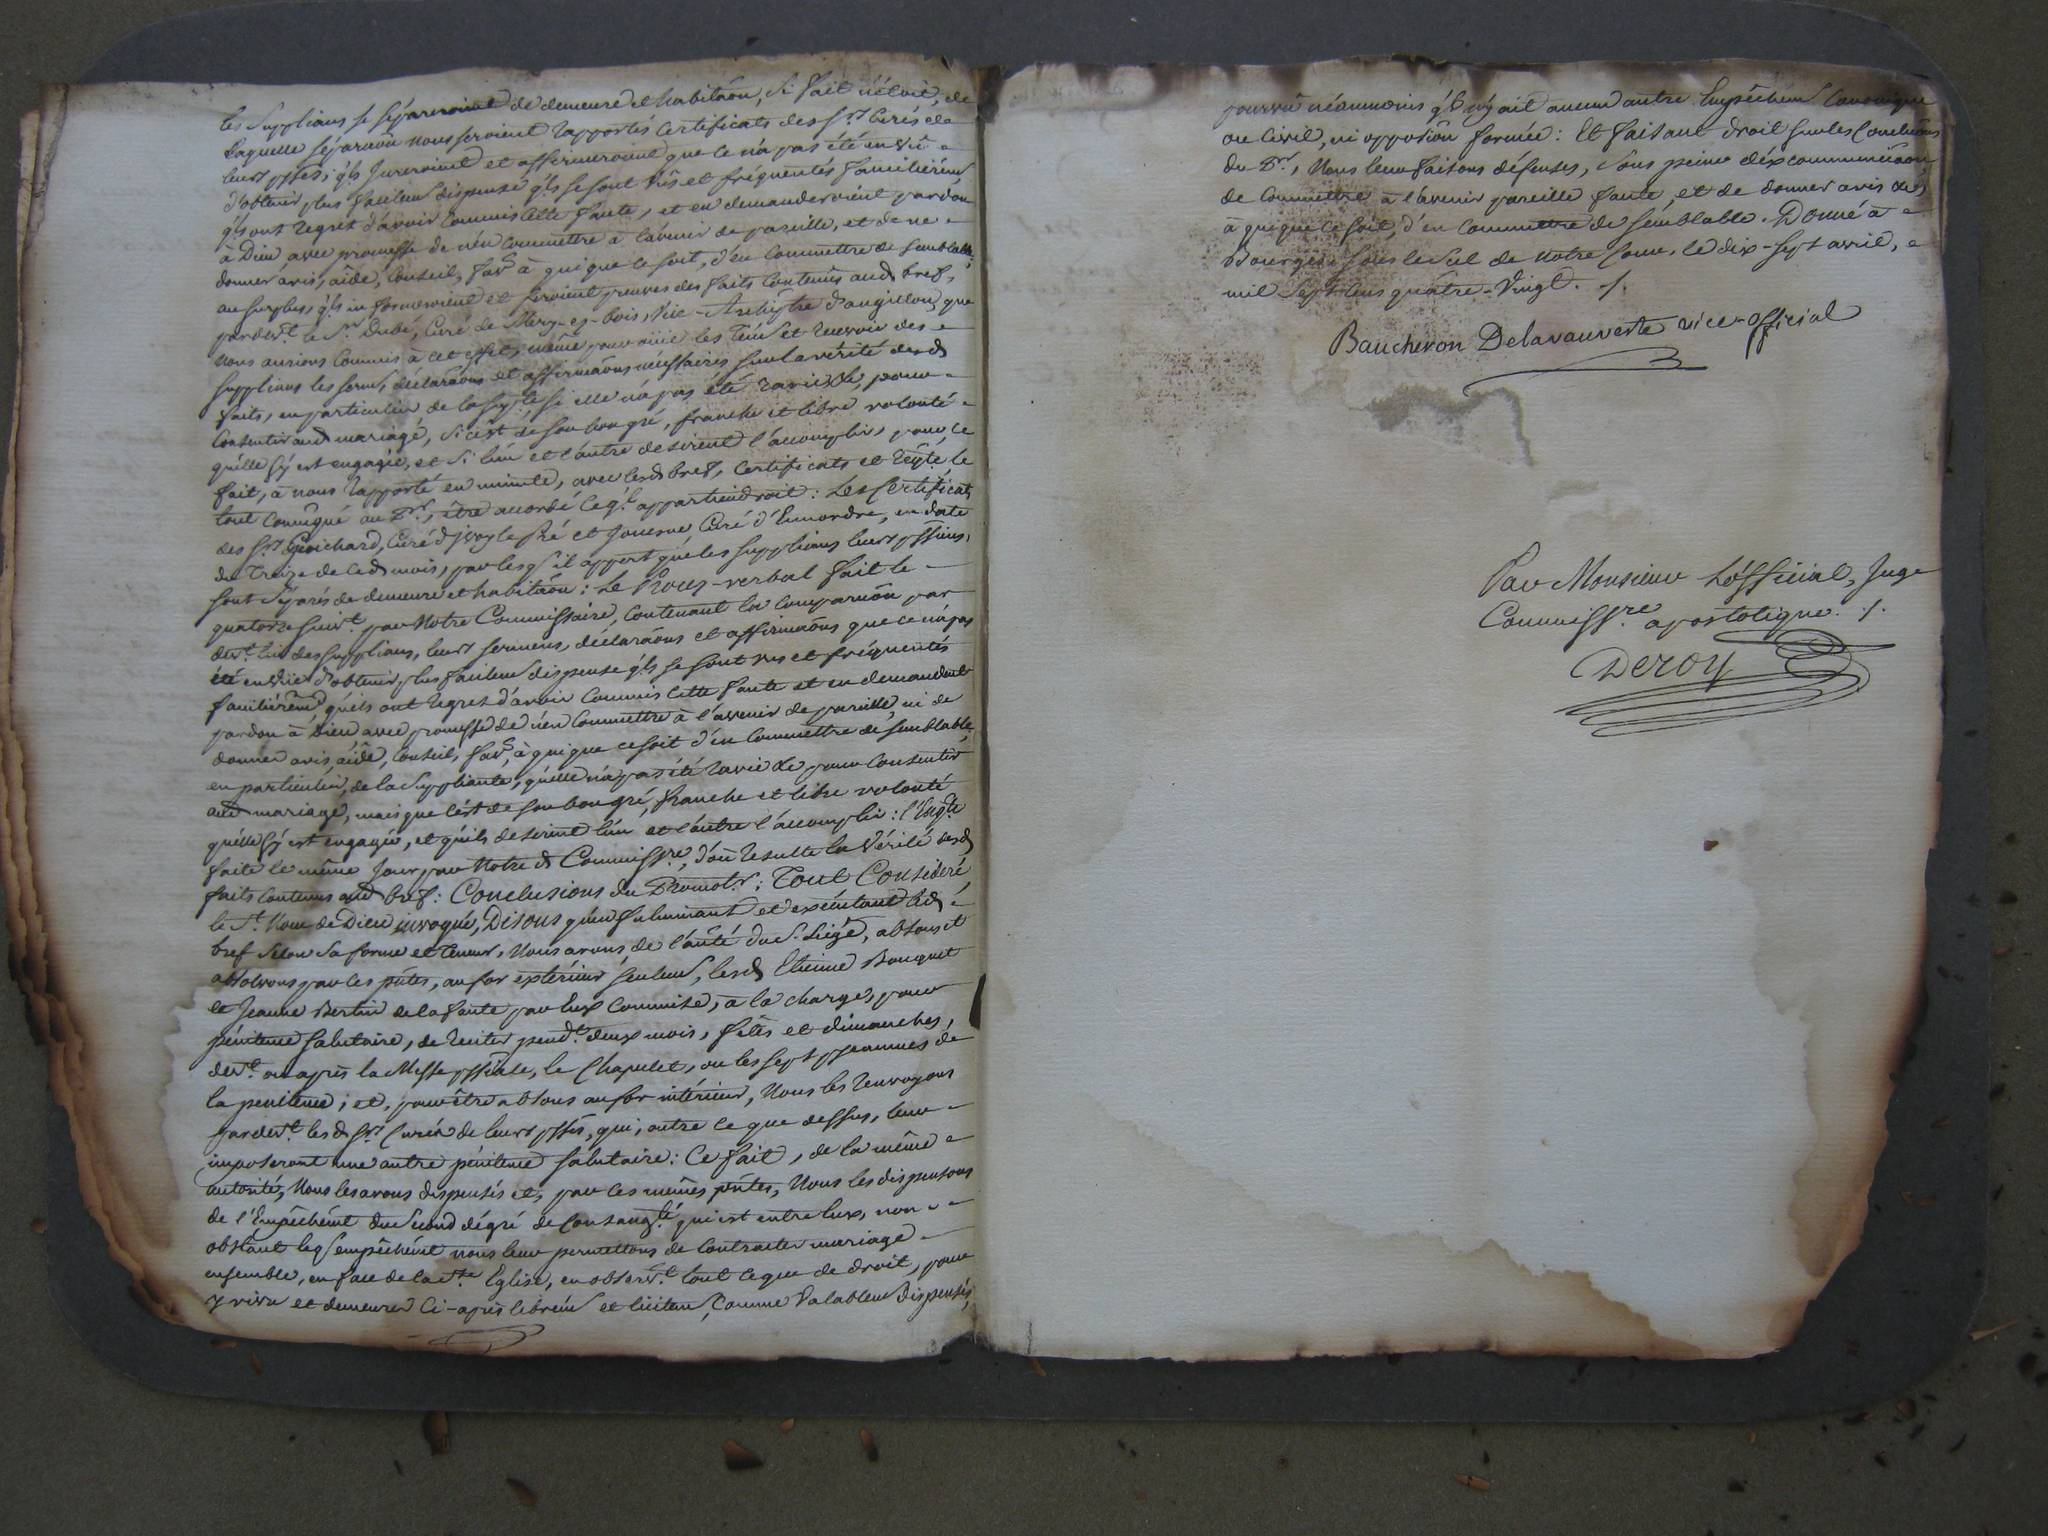 les Supplians se sépareroient de demeure et habitâon, si fait n'étoit, de
laquelle séparâon nous seroient rapportés certificats des Srs Curés de
leurs psses; q'ls jureroient et affirmeroient que ce n'a pas été en vüe
d'obtenir plus facilemt dispense q'ls se sont vûs et fréquentés familiéremt
q'ls ont regret d'avoir commis cette faute, et en demanderoient pardon
à Dieu, avec promesse de n'en commettre à l'avenir de pareille, et de ne
donner avis, aîde, conseil, favr à qui que ce soit, d'en commettre de semblable;
au surplus, q'ls informeroient et feroient preuves des faits contenus aud bref,
pardevt le Sr Dubé, Curé de Mery-es-bois, Vic-Archiptre d'angillon, que
nous aurions commis à cet effet, même pour ouir les Tems et recevoir des
supplians les serms, déclarâons et affirmâons nécessaires sur la vérité desd
faits, en particulier de la suppte, si elle n'a pas été ravie &c, pour
consentir aud mariage, si c'est de son bon gré, franche et libre volonté
qu'elle s'y est engagée, et si l'un et l'autre desirent l'accomplir, pour, ce
fait, à nous rapporté en minute, avec lesd bref, certificats et reqte, le
tout com̃niqué au Pr, être accordé ce q'l appartiendroit: Les Certificats
des Srs Guichard, Curé d'jvoy le Pré et Jouesne Curé d'Ennordre, en date
du Treize de ced mois, par lesq's il appert que les supplians leurs pssiens,
sont séparés de demeure et habitâon: Le Procez-verbal fait le
quatorze suivt par Notre Commissaire, contenant la comparâon par
devt lui des supplians, leurs sermens, déclarâons et affirmâons que ce n'a pas
été en vüe d'obtenir plus facilemt dispense q'ls se sont vus et fréquentés
familiéremt, qu'ils ont regret d'avoir commis cette faute et en demandent
pardon à Dieu avec promesse de n'en commettre à l'avenir de pareille, ni de
donner avis, aîde, conseil, favr, à qui que ce soit d'en commettre de semblable,
en particulier, de la Suppliante, qu'elle n'a pas été ravie &c pour consentir
aud mariage, mais que c'est de son bon gré, franche et libre volonté
qu'elle s'y est engagée, et qu'ils desirent l'un et l'autre l'accomplir: l'Enqte
faite le même jour par Notre d Commissre, d'où résulte la vérité desd
faits contenus aud bref: Conclusions du Promotr: Tout Considéré,
le St Nom de Dieu invoqué, Disons qu'en fulminant et exécutant led
bref selon sa forme et teneur, Nous avons, de l'autté du S. Siége, absous et
absolvons par ces pntes, au for extérieur seulemt, lesd Etienne Bouquet
et Jeanne Bertin de la faute par Eux commise, à la charge, pour
pénitence salutaire, de reciter pendt deux mois, fêtes et dimanches,
devt ou après la Messe pssiale, le Chapelet, ou les sept pseaumes de
la penitence; et, pour être absous au for intérieur, Nous les renvoyons
pardevt lesd Srs Curés de leurs psses, qui, outre ce que dessus, leur
imposeront une autre pénitence salutaire: Ce fait, de la même
autorité, Nous les avons dispensés et, par ces mêmes pntes, Nous les dispensons
de l'Empêchemt du second dégré de consangté qui est entre Eux, non
obstant leq'l empêchemt nous leur permettons de contracter mariage
ensemble, en face de la Ste Eglise, en observt tout ce que de droit, pour
y vivre et demeurer ci-après libremt et licitemt, comme valablemt dispensés,
pourvû néanmoins q'l n'y ait aucun autre Empêchemt Canonique
ou Civil, ni oppositîon formée: Et faisant droit sur les Conclusîons
du Pr, Nous leur faisons défenses, sous peine d'éxcommunicâon,
de commettre à l'avenir pareille faute, et de donner avis &c,
à qui que ce soit, d'en commettre de semblable. Donné à
Bourges sous le Scel de Notre Cour, le dix-sept avril,
mil sept cens quatre-vingt. /.
Baucheron Delavauverte vice-official
Par Monsieur L'official, Juge
Commissre apostolique. /.
Deroy